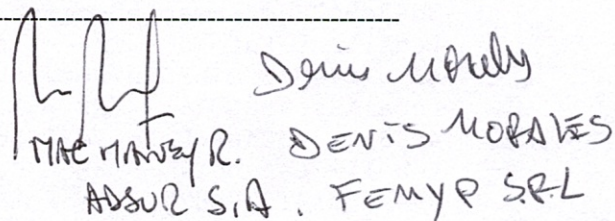 Denis Morales
R. DENIS MORALES
ADSUR S.A. FEMYP S.R.L